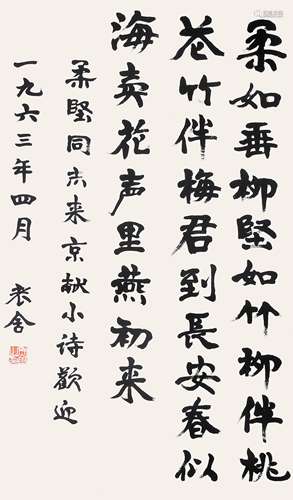 柔如垂柳堅如竹柳伴桃
花竹伴梅君到長安春似
海卖花声里燕初来
柔堅同志来京献小诗歡迎
一九六三年四月
老舍